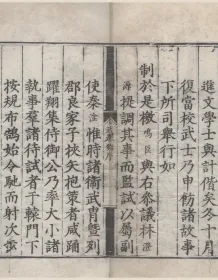 進文學士與計偕矣冬十月
復當校武士乃申飭諸故事
下所司舉行如
制於是檄鳴臣與右叅議林澄
源提調其事而監試以屬副
使秦淦惟時諸衛武冑暨列
郡良家子挾矢抱策者咸踊
躍翔集侍御公乃率大小諸
執事羣諸待試者于轅門下
按規布鵠始令馳而射次